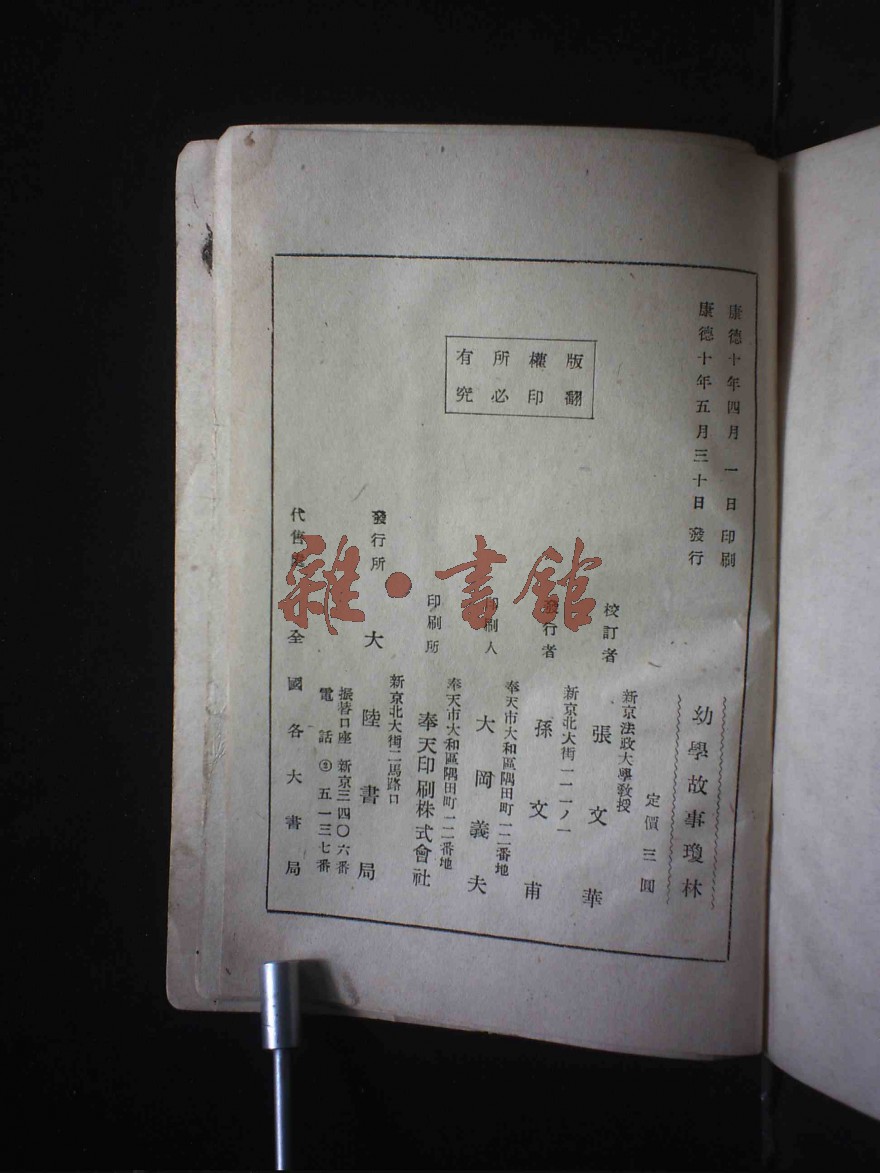 康德十年四月一日印刷
康德十年五月三十日發行
版權所有
翻印必究
幼學故事瓊林
定價三圓
新京法政大學教授
校訂者 張文華
新京北大街一一一ノ一
發行者 孫文甫
奉天市大和區隅田町一二番地
印刷人 大岡義夫
奉天市大和區隅田町一二番地
印刷所 奉天印刷株式會社
新京北大街二馬路口
發行所 大陸書局
振替口座 新京三四〇六番
電話②五一三七番
代售處 全國各大書局
雜·書館